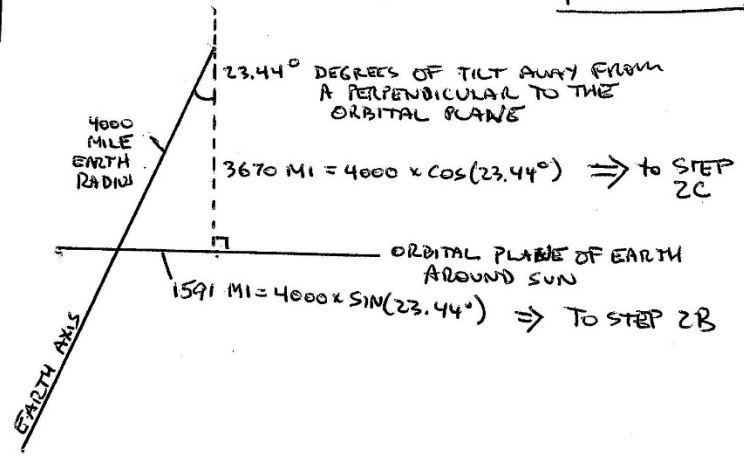 23.44° DEGREES OF TILT AWAY FROM
A PERPENDICULAR TO THE
ORBITAL PLANE
4000
MILE
EARTH
RADIUS
3670 MI = 4000 x COS(23.44°) ⇒ to STEP
2C
ORBITAL PLANE OF EARTH
AROUND SUN
1591 MI = 4000 x SIN(23.44°) ⇒ TO STEP 2B
EARTH AXIS